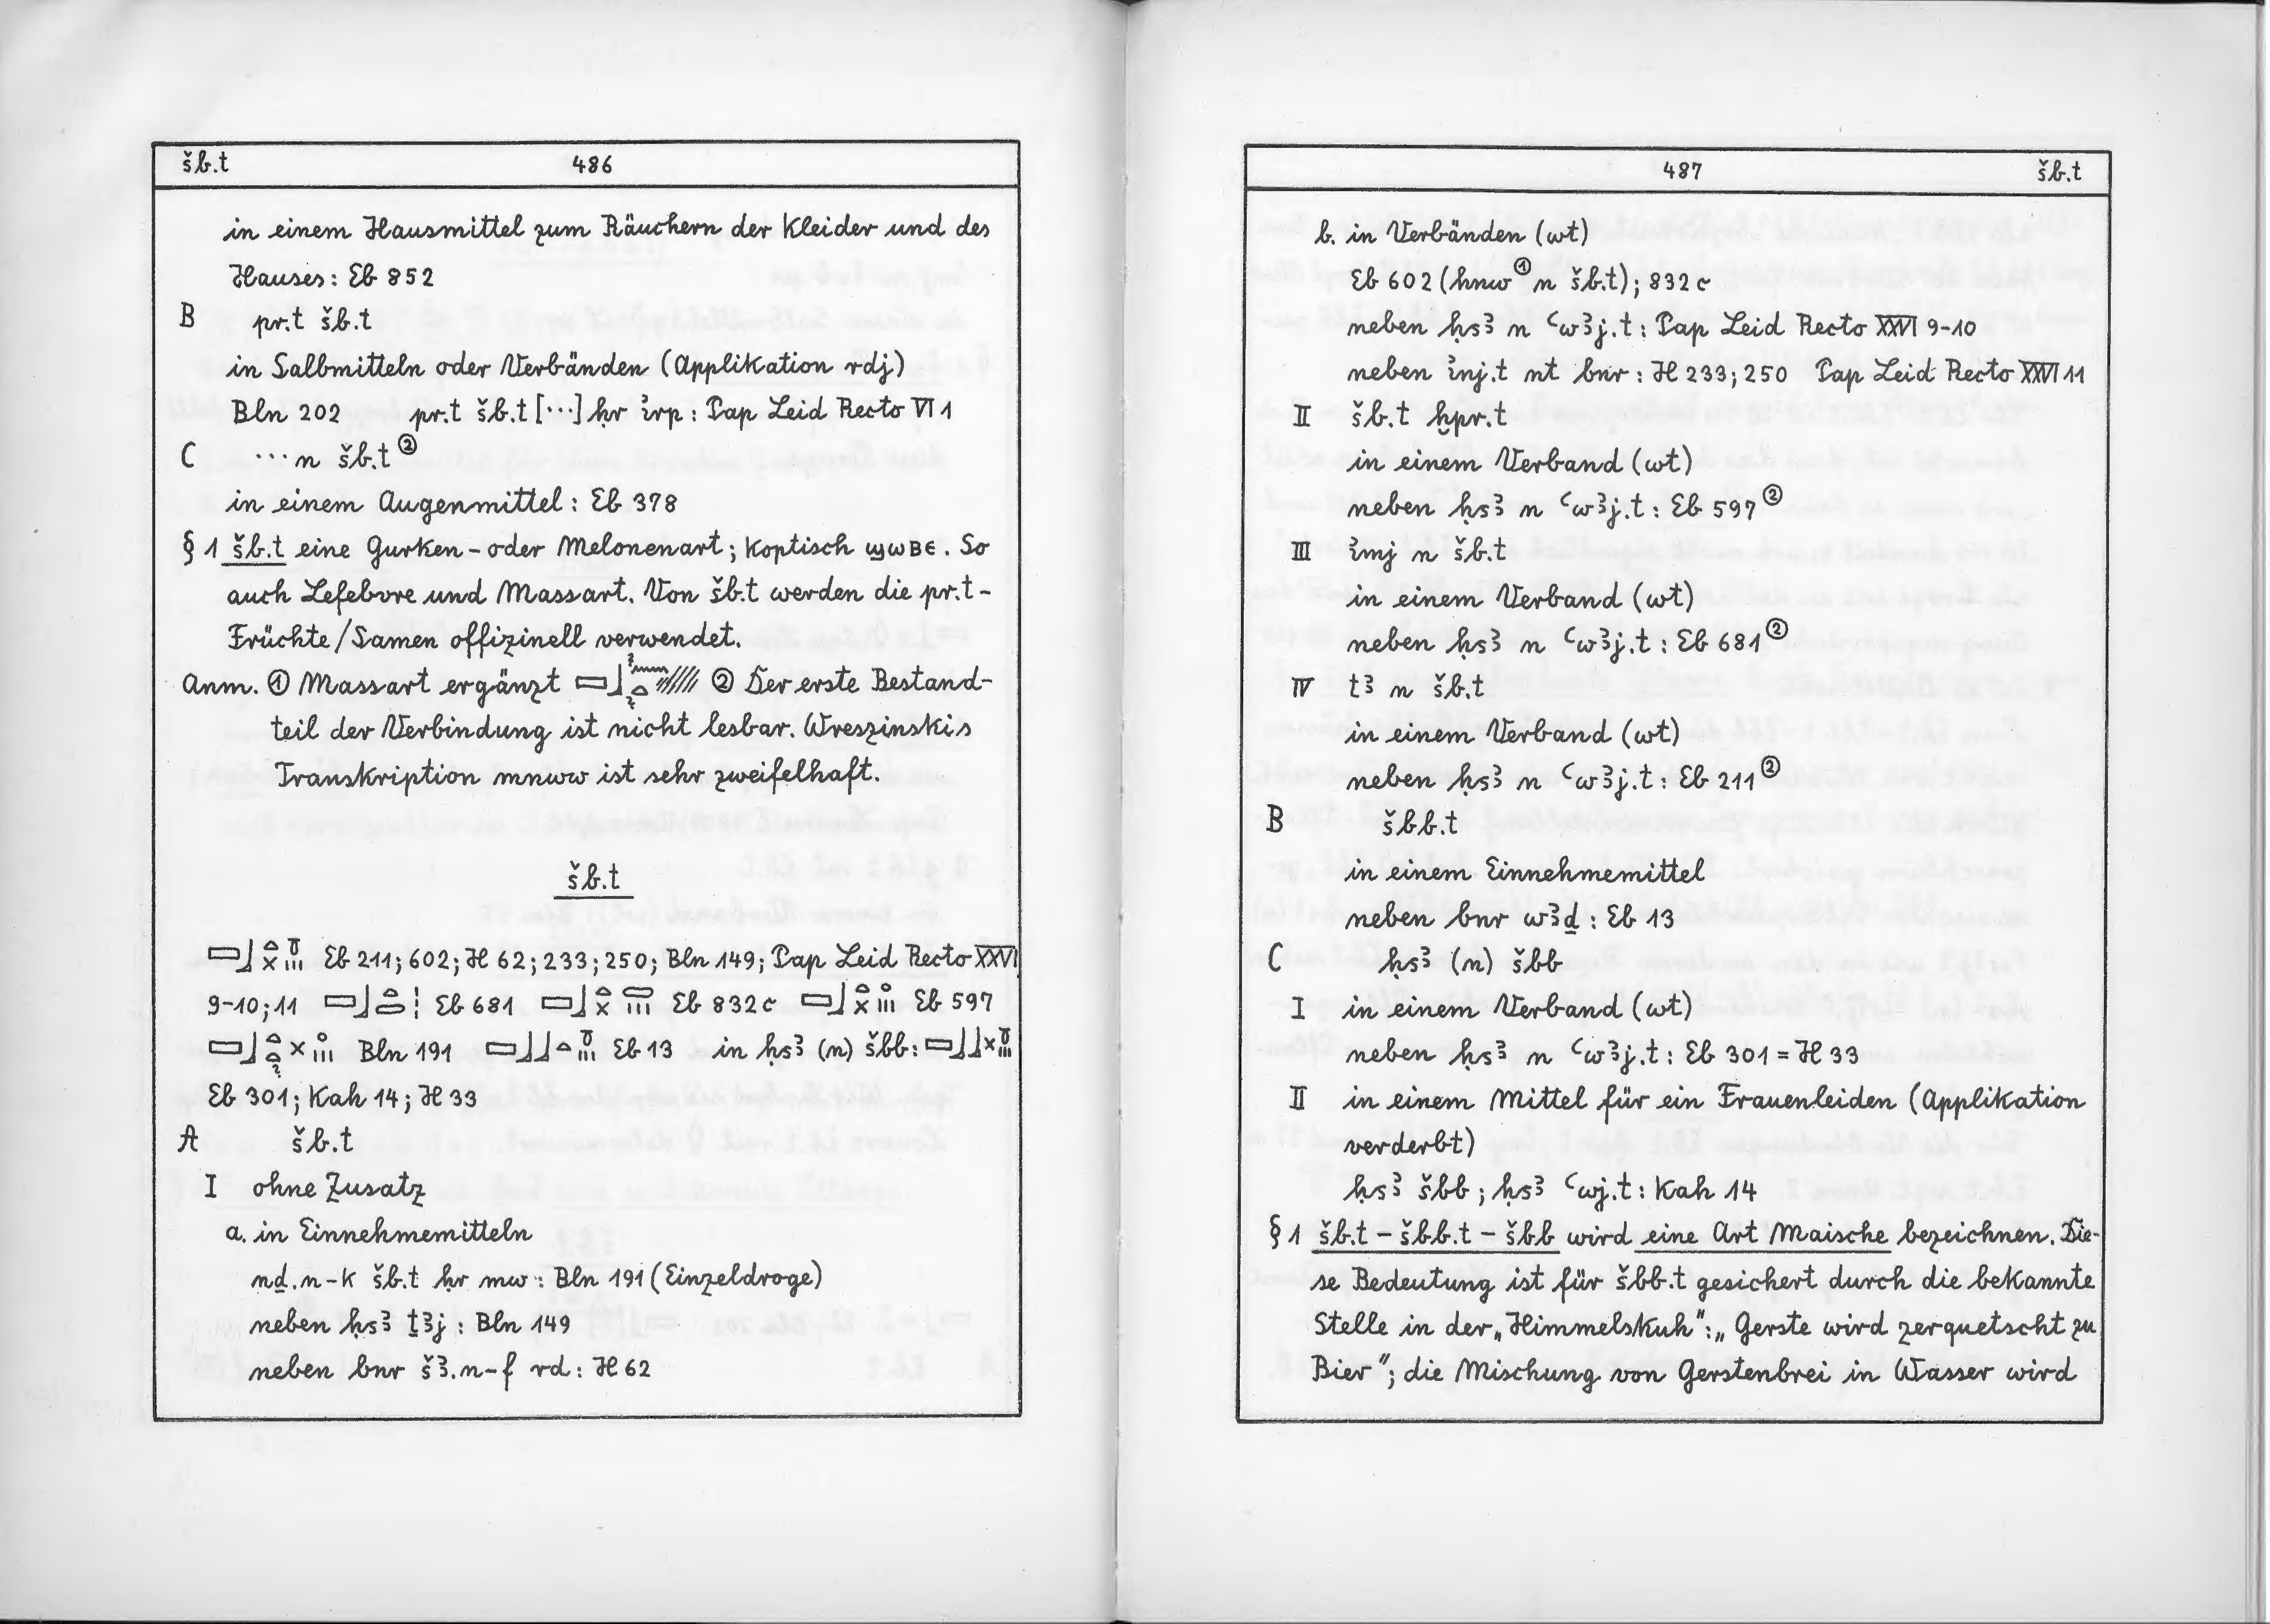 šb.t 486
in einem Hausmittel zum Räuchern der Kleider und des
Hauses: Eb 852
B pr.t šb.t
in Salbmitteln oder Verbänden (Applikation rdj)
Bln 202 pr.t šb.t [···] ḥr ἰrp : Pap Leid Recto VI 1
C ··· n šb.t ②
in einem Augenmittel: Eb 378
§ 1 šb.t eine Gurken- oder Melonenart; Koptisch ϣⲱⲃⲉ. So
auch Lefebvre und Massart. Von šb.t werden die pr.t-
Früchte/Samen offizinell verwendet.
Anm. ① Massart ergänzt ② Der erste Bestand-
teil der Verbindung ist nicht lesbar. Wreszinskis
Transkription mnww ist sehr zweifelhaft.
šb.t
Eb 211; 602; H 62; 233; 250; Bln 149; Pap Leid Recto XXVI
9-10; 11 Eb 681 Eb 832c Eb 597
Bln 191 Eb 13 in ḥsꜣ (n) šbb:
Eb 301; Kah 14; H 33
A šb.t
I ohne Zusatz
a. in Einnehmemitteln
nḏ.n-k šb.t ḥr mw : Bln 191 (Einzeldroge)
neben ḥsꜣ ṯꜣj : Bln 149
neben bnr šꜣ.n-f rd : H 62
487 šb.t
b. in Verbänden (wt)
Eb 602 (hnw ① n šb.t); 832c
neben ḥsꜣ n ꜥwꜣj.t : Pap Leid Recto XXVI 9-10
neben ἰnj.t nt bnr : H 233; 250 Pap Leid Recto XXVI 11
II šb.t ḫpr.t
in einem Verband (wt)
neben ḥsꜣ n ꜥwꜣj.t : Eb 597 ②
III ἰmj n šb.t
in einem Verband (wt)
neben ḥsꜣ n ꜥwꜣj.t : Eb 681 ②
IV tꜣ n šb.t
in einem Verband (wt)
neben ḥsꜣ n ꜥwꜣj.t : Eb 211 ②
B šbb.t
in einem Einnehmemittel
neben bnr wꜣḏ : Eb 13
C ḥsꜣ (n) šbb
I in einem Verband (wt)
neben ḥsꜣ n ꜥwꜣj.t : Eb 301 = H 33
II in einem Mittel für ein Frauenleiden (Applikation
verderbt)
ḥsꜣ šbb ; ḥsꜣ ꜥwj.t : Kah 14
§ 1 šb.t – šbb.t – šbb wird eine Art Maische bezeichnen. Die-
se Bedeutung ist für šbb.t gesichert durch die bekannte
Stelle in der „Himmelskuh": „Gerste wird zerquetscht zu
Bier"; die Mischung von Gerstenbrei in Wasser wird